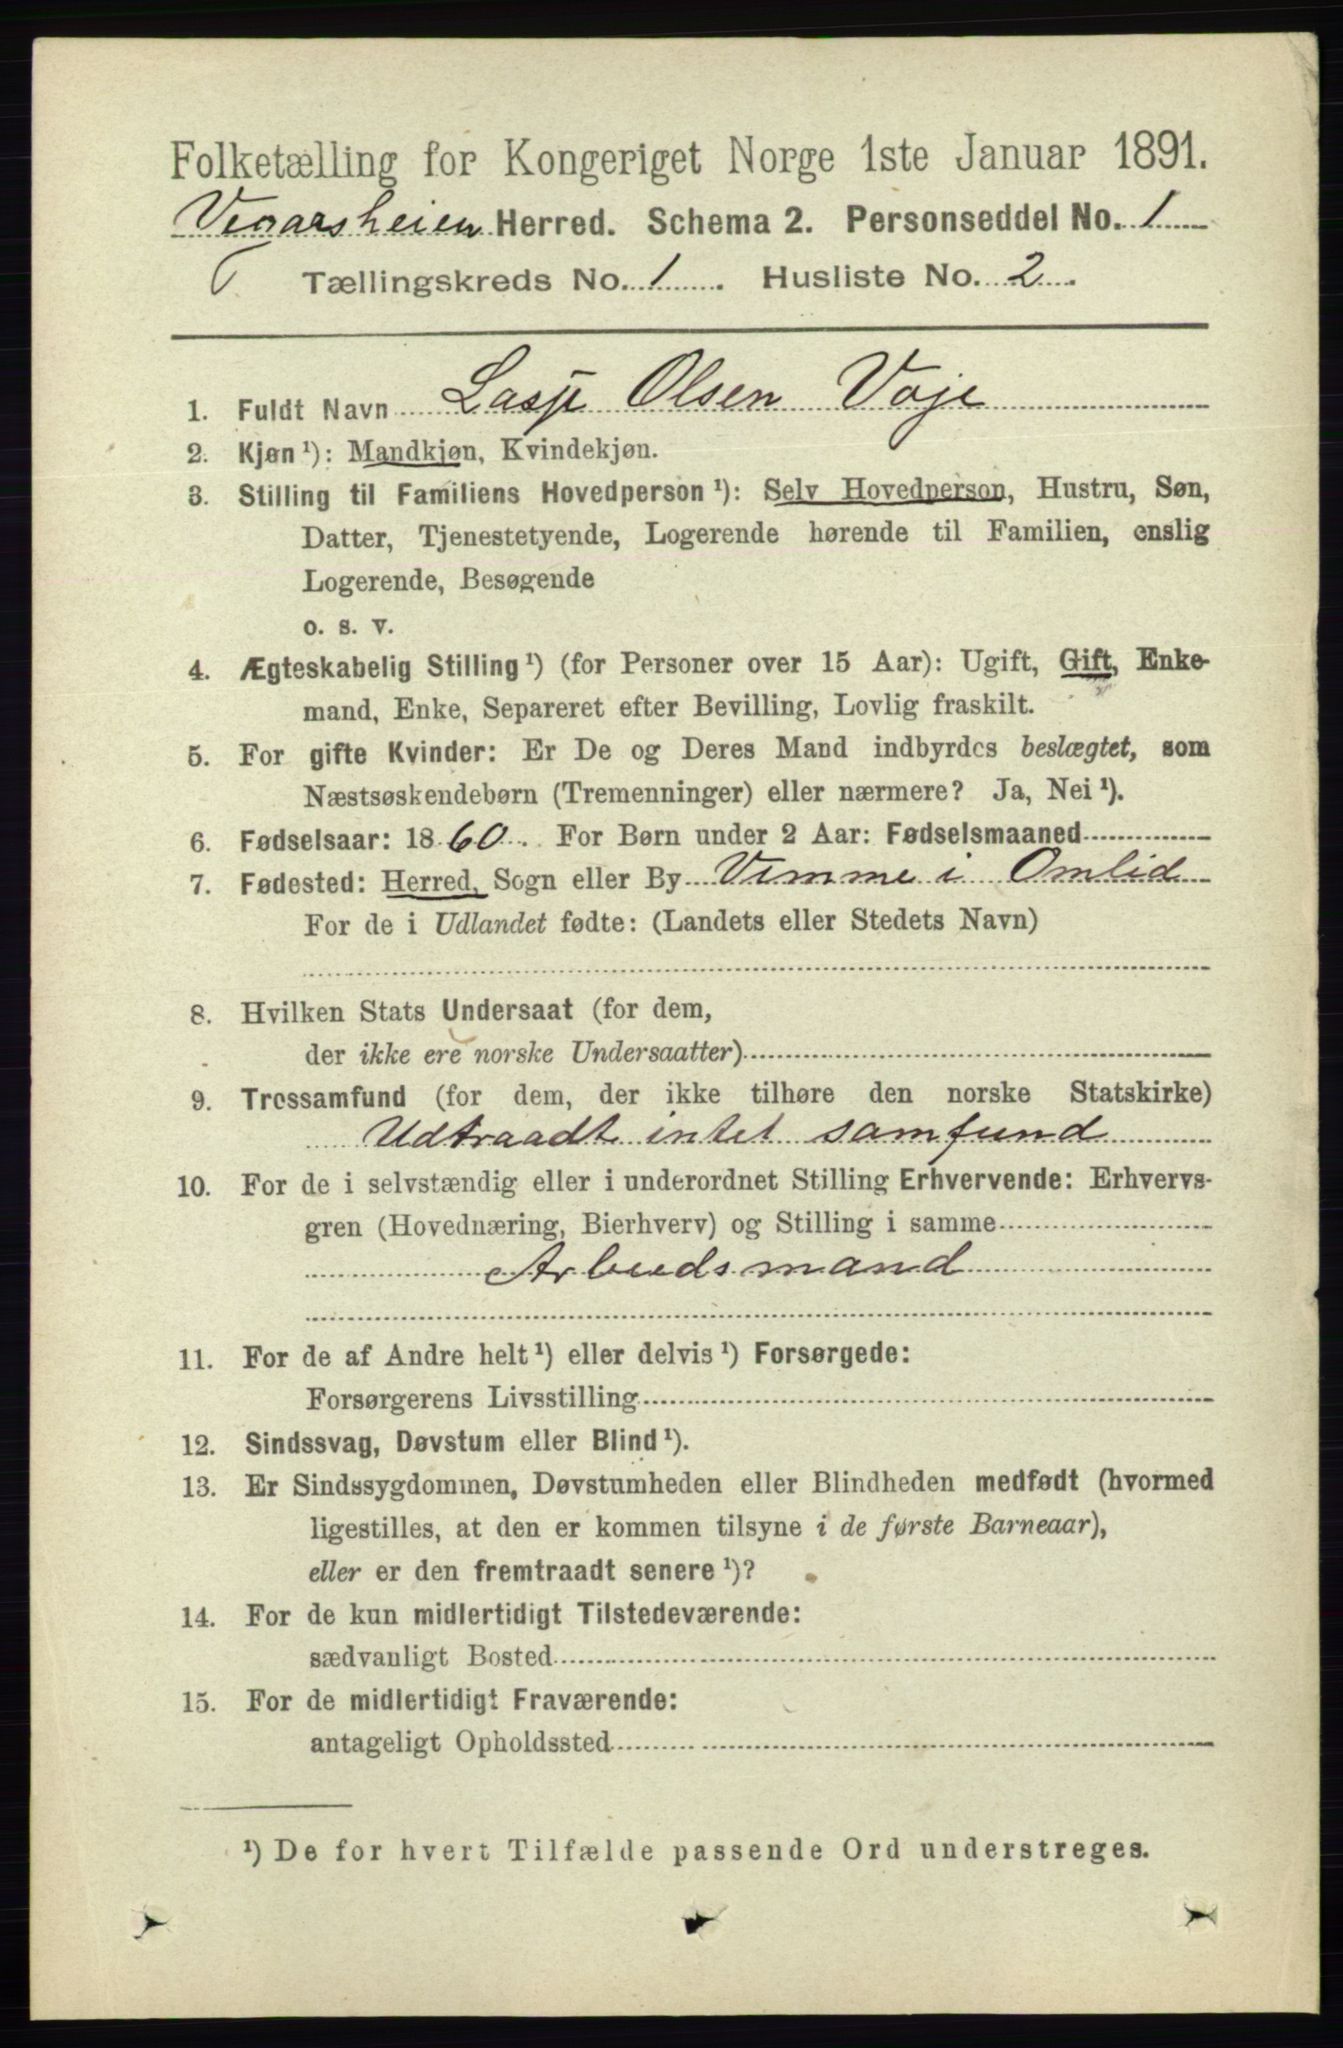 Folketælling for Kongeriget Norge 1ste Januar 1891.
Vegarsheien Herred. Schema 2. Personseddel No. 1
Tællingskreds No. 1. Husliste No. 2.
1. Fuldt Navn Lasje Olsen Voje
2. Kjøn ¹): Mandkjøn, Kvindekjøn.
3. Stilling til Familiens Hovedperson ¹): Selv Hovedperson, Hustru, Søn,
Datter, Tjenestetyende, Logerende hørende til Familien, enslig
Logerende, Besøgende
o. s. v.
4. Ægteskabelig Stilling ¹) (for Personer over 15 Aar): Ugift, Gift, Enke-
mand, Enke, Separeret efter Bevilling, Lovlig fraskilt.
5. For gifte Kvinder: Er De og Deres Mand indbyrdes beslægtet, som
Næstsøskendebørn (Tremenninger) eller nærmere? Ja, Nei ¹).
6. Fødselsaar: 1860. For Børn under 2 Aar: Fødselsmaaned
7. Fødested: Herred, Sogn eller By Vimme i Omlid
For de i Udlandet fødte: (Landets eller Stedets Navn)
8. Hvilken Stats Undersaat (for dem,
der ikke ere norske Undersaatter)
9. Trossamfund (for dem, der ikke tilhøre den norske Statskirke)
Udtraadt intet samfund
10. For de i selvstændig eller i underordnet Stilling Erhvervende: Erhvervs-
gren (Hovednæring, Bierhverv) og Stilling i samme
Arbeidsmand
11. For de af Andre helt ¹) eller delvis ¹) Forsørgede:
Forsørgerens Livsstilling
12. Sindssvag, Døvstum eller Blind ¹).
13. Er Sindssygdommen, Døvstumheden eller Blindheden medfødt (hvormed
ligestilles, at den er kommen tilsyne i de første Barneaar),
eller er den fremtraadt senere ¹)?
14. For de kun midlertidigt Tilstedeværende:
sædvanligt Bosted
15. For de midlertidigt Fraværende:
antageligt Opholdssted
¹) De for hvert Tilfælde passende Ord understreges.